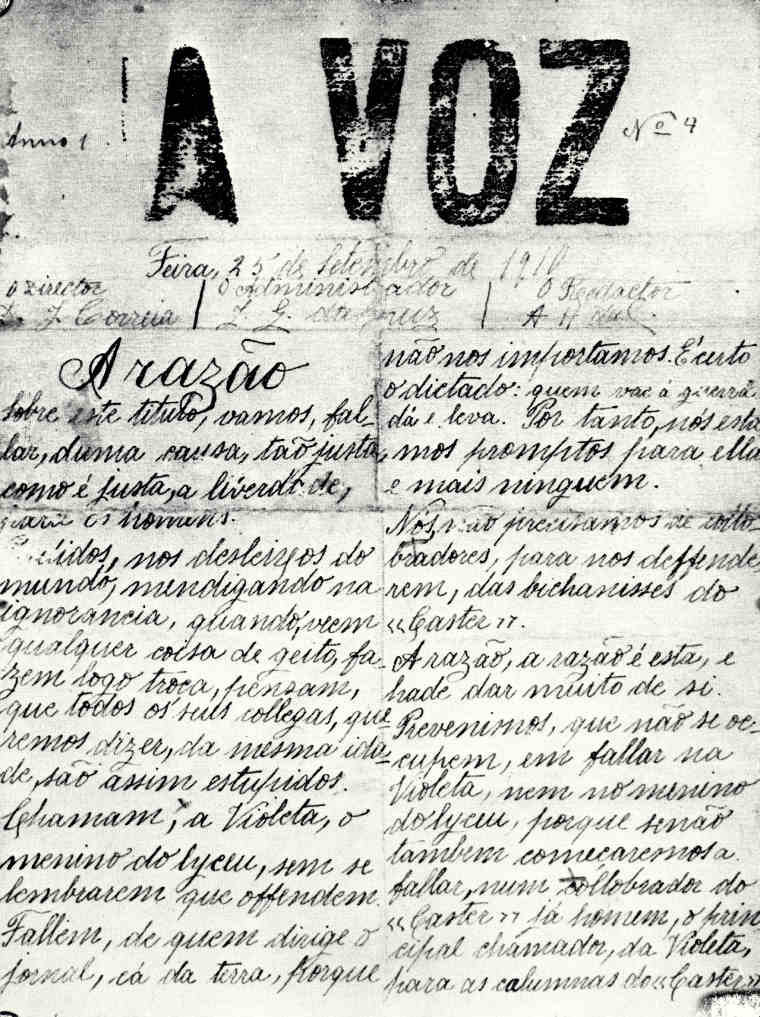 A VOZ
Anno 1
Nº 4
Feira, 25 de Setembro de 1910
O Director
J. Correia
O Administrador
J. G. da Cruz
O Redactor
A razão
Sobre este titulo, vamos, fal-
lar, duma causa, tão justa,
como é justa, a liverdade,
para os homens.
nos desleixos do
mundo, mendigando na
ignorancia, quando, veem
qualquer coisa de geito, fa-
zem logo troca, pensam,
que todos os seus collegas, que-
remos dizer, da mesma ida-
de, são assim estupidos.
Chamam, a Violeta, o
menino do lyceu, sem se
lembrarem que offendem.
Fallem, de quem dirige o
jornal, cá da terra, porque
não nos importamos. É certo
o dictado: quem vae á guerra,
dá e leva. Por tanto, nós esta
mos promptos para ella
e mais ninguem.
Nós, não precisamos de collo-
bradores, para nos deffende
rem, das bichanisses do
«Caster».
A razão, a razão é esta, e
hade dar muito de si.
Prevenimos, que não se oc-
cupem, em fallar na
Violeta, nem no menino
do lyceu, porque senão
tambem começaremos a
fallar, num collobrador do
«Caster» já homem, o prin
cipal chamador, da Violeta,
para as calumnas do «Caster»